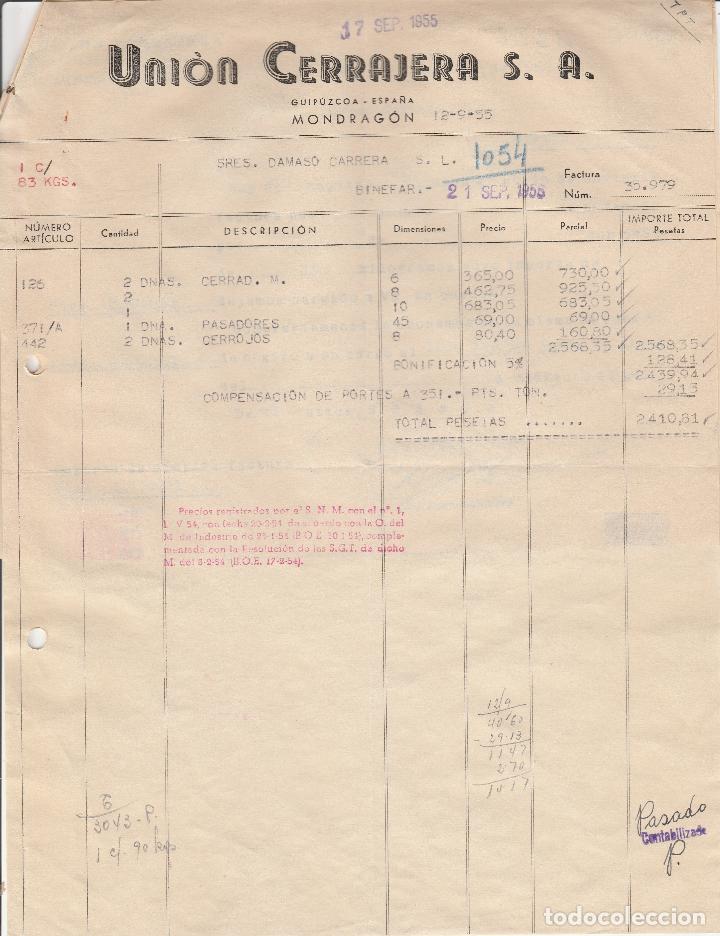 17 SEP. 1955
TPT
UNIÒN CERRAJERA S. A.
GUIPÚZCOA - ESPAÑA
MONDRAGÓN 12-9-55
1 C/
83 KGS.
SRES. DAMASO CARRERA S. L. 1054
BINEFAR.- 21 SEP. 1955
Factura
Núm. 35.979
NÚMERO ARTÍCULO Cantidad DESCRIPCIÓN Dimensiones Precio Parcial IMPORTE TOTAL Pesetas
126 2 DNAS. CERRAD. M. 6 365,00 730,00
2 8 462,75 925,50
1 10 683,05 683,05
371/A 1 DNA. PASADORES 45 69,00 69,00
442 2 DNAS. CERROJOS 8 80,40 160,80
2.568,35 2.568,35
BONIFICACIÓN 5% 128,41
2.439,94
COMPENSACIÓN DE PORTES A 351.- PTS. TON. 29,13
TOTAL PESETAS ....... 2.410,81
Precios registrados por el S. N. M. con el nº. 1,
L V 54, con fecha 20-2-54 de acuerdo con la O. del
M. de Industria de 21-1-54 (B.O.E. 30-1-54), comple-
mentada con la Resolución de las S.G.T. de dicho
M. del 8-2-54 (B.O.E. 17-2-54).
12/9
40'60
- 29.13
11 47
2 70
10 17
6
3043 - P.
1 c/. 90 kgs
Pasado
Contabilizado
P.
todocoleccion